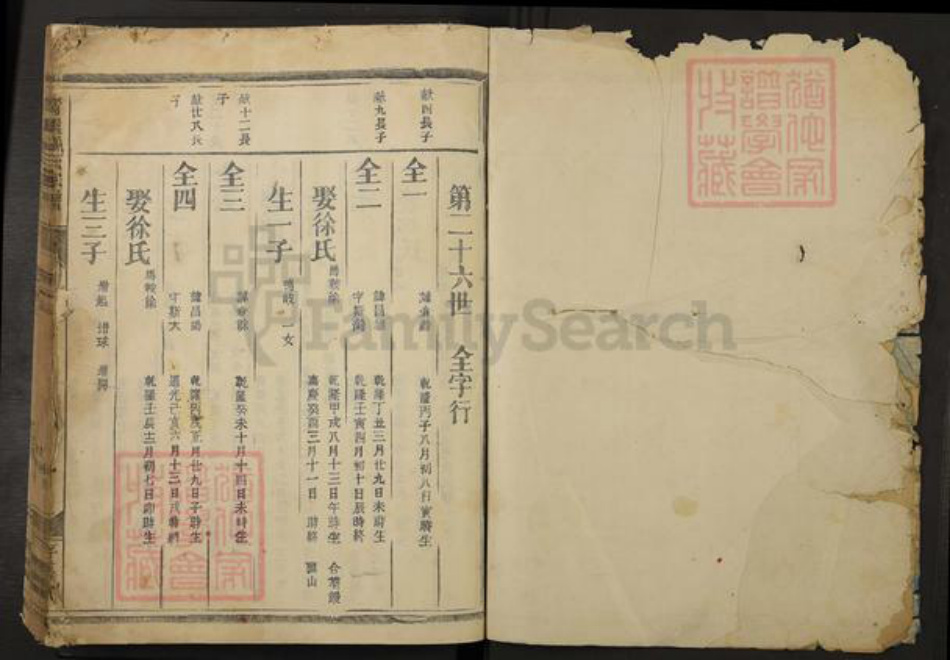 第二十六世 全字行
獻四長子
全一
乾隆丙子八月初八日寅時生
獻九長子
全二
乾隆丁丑三月廿九日未時生
乾隆壬寅四月初十日辰時終
娶徐氏
乾隆甲戌八月十三日午時生 合葬
嘉慶癸酉三月十一日 時終 山
生一子
一女
獻十二長子
全三
乾隆癸未十月十四日未時生
獻廿八長子
全四
諱昌
字斯大
乾隆 廿九日子時生
道光己亥六月十三日戌時終
娶徐氏
馬鞍徐
乾隆壬辰十二月初七日卯時生
生三子
增球
FamilySearch
譜學會
收藏
譜學會
收藏